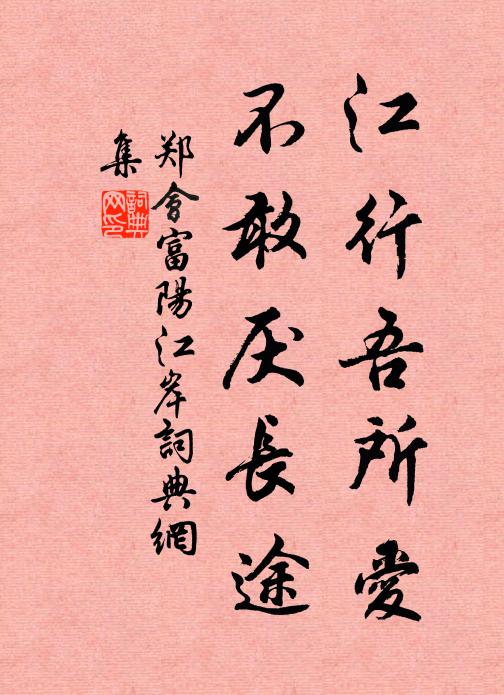 江行吾所愛
不敢厌長途
郑會富陽江岸詞典網
集
詞典網印